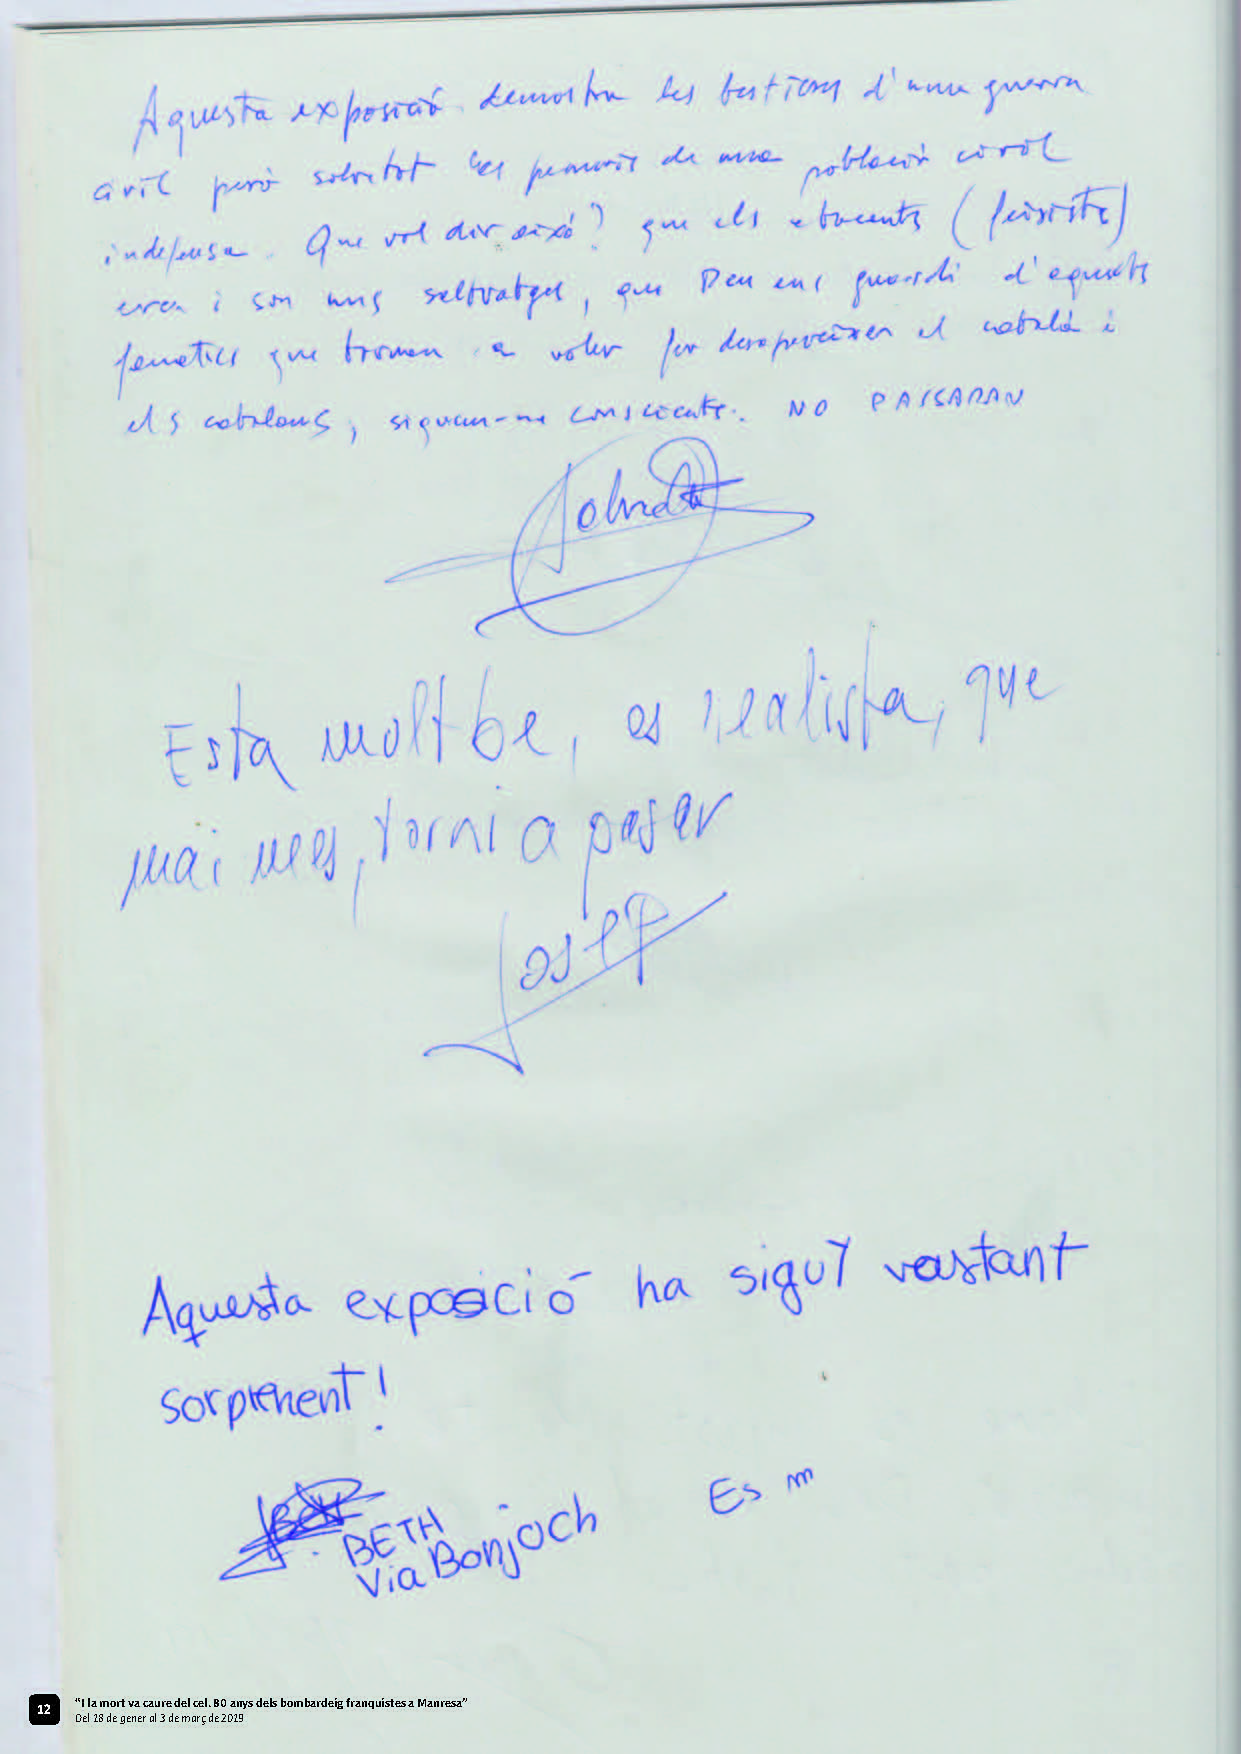 Aquesta exposició demostra les bestieses d'una guerra
civil però sobretot les penuries de una població civil
indefensa. Que vol dir això? que els atacants (feixistes)
eren i son uns saltvatges, que Deu ens guardi d'aquests
fanatics que tornen a voler fer desapareixer el català i
els catalans, siguem-ne conscients. NO PASSARAN
Esta molt be, es realista, que
mai mes, torni a pasar
Josep
Aquesta exposició ha sigut vastant
sorprenent!
BETH
Via Bonjoch
Es m
12
"I la mort va caure del cel. 80 anys dels bombardeig franquistes a Manresa"
Del 18 de gener al 3 de març de 2019